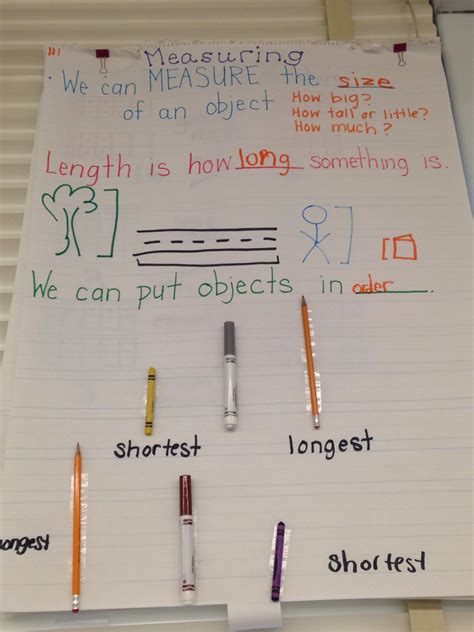 Measuring
· We can MEASURE the size
of an object
How big?
How tall or little?
How much?
Length is how long something is.
We can put objects in order.
shortest
longest
longest
shortest